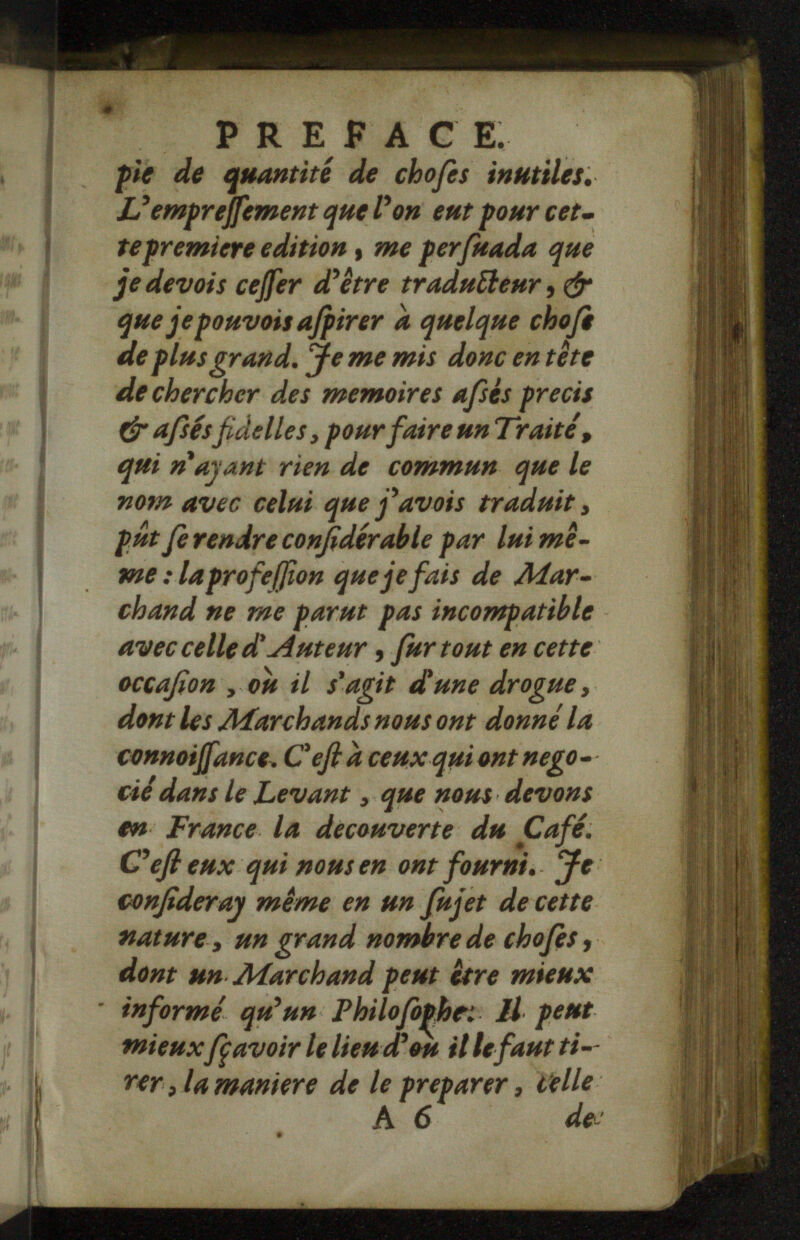 PREFACE.
pie de quantité de choſes inutiles.
L'empreſſement que l'on eut pour cet-
te premiere edition, me perſuada que
je devois ceſſer d'être traducteur, &
que je pouvois aſpirer à quelque choſe
de plus grand. Je me mis donc en tête
de chercher des memoires aſsés precis
& aſsés fidelles, pour faire un Traité,
qui n'ayant rien de commun que le
nom avec celui que j'avois traduit,
pût ſe rendre conſidérable par lui mê-
me : la profeſſion que je fais de Mar-
chand ne me parut pas incompatible
avec celle d'Auteur, ſur tout en cette
occaſion, où il s'agit d'une drogue,
dont les Marchands nous ont donné la
connoiſſance. C'eſt à ceux qui ont nego-
cié dans le Levant, que nous devons
en France la decouverte du Café.
C'eſt eux qui nous en ont fourni. Je
conſideray même en un ſujet de cette
nature, un grand nombre de choſes,
dont un Marchand peut être mieux
informé qu'un Philoſophe: Il peut
mieux ſçavoir le lieu d'où il le faut ti-
rer, la maniere de le preparer, telle
A 6 de